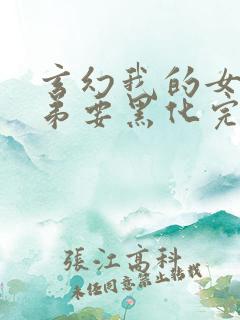 玄幻我的女
弟要黑化完
張江高科
未经同意禁止转载